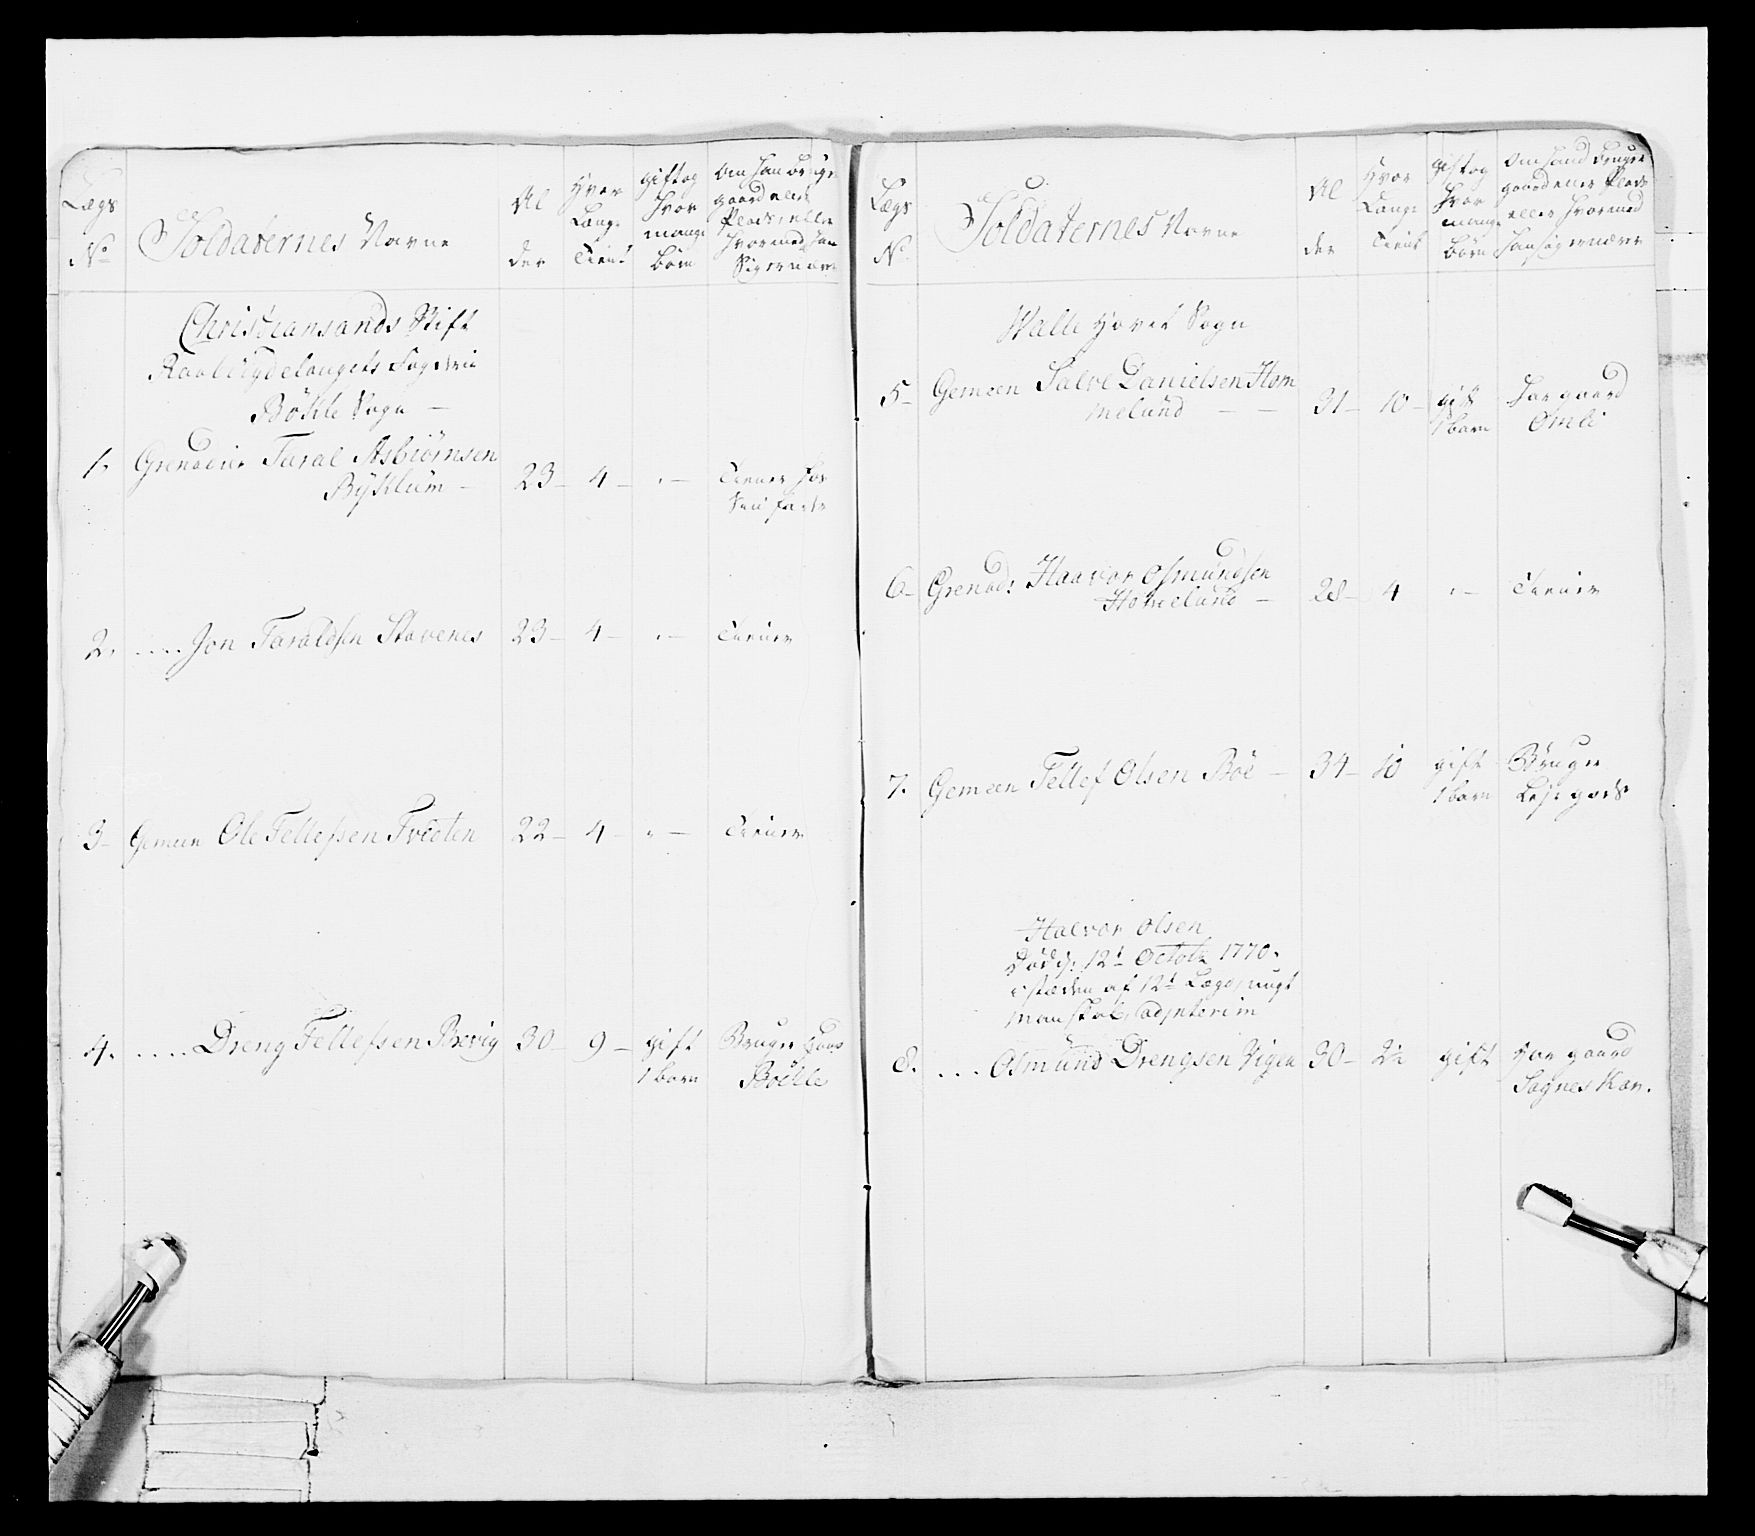 Lægs
No
Soldaternes Navne
Al
der
Hvor
Længe
Tient
gift og
hvor
mange
börn
om han bruger
gaard eller
Plads, eller
hvormed han
Sig ernærer
Christiansands Stift
Raabÿgdelaugets Fogderie
BöKle Sogn —
1. Grenadeer Taral Asbiörnsen
BÿKlum — 23 — 4 — " — Tiener hos
Sin fader
2. .... Jon Taraldsen Stavenes 23 — 4 — " — Tiener
3 — Gemeen Ole Tellefsen Tveiten 22 — 4 — " — Tiener
4. .... Dreng Tellefsen Brevig 30 — 9 — gift
1 barn
Bruger
Böckle
Lægs
No
Soldaternes Navne
Al
der
Hvor
Længe
Tient
gift og
hvor
mange
börn
om hand bruger
gaard eller Plads
eller hvormed
han sig ernærer
Walle Hovet Sogn
5 — Gemeen Salve Danielsen Hom
melund — — 31 — 10 — gift
1 barn
har gaard
Omli
6 — Grenad: Haavor Osmundsen
Homelund — 28 — 4 " — Tiener
7. Gemeen Tellef Olsen Böe — 34 — 10 gift
1 barn
Bruger
Leje gods
Halvor Olsen
Död d: 12t Octobr 1770.
i stæden af 12t Lægs, ungt
manskab, ad interim
8. .... Osmund Drengsen Vigen 30 — 2½ gift Har gaard
Sognes Kar.